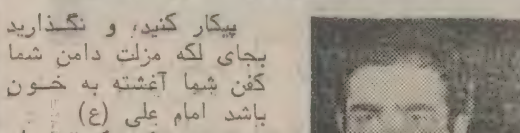 پیکار کنید، و نگذارید
بجای لکه مزلت دامن شما
کفن شما آغشته به خون
باشد امام علی (ع)